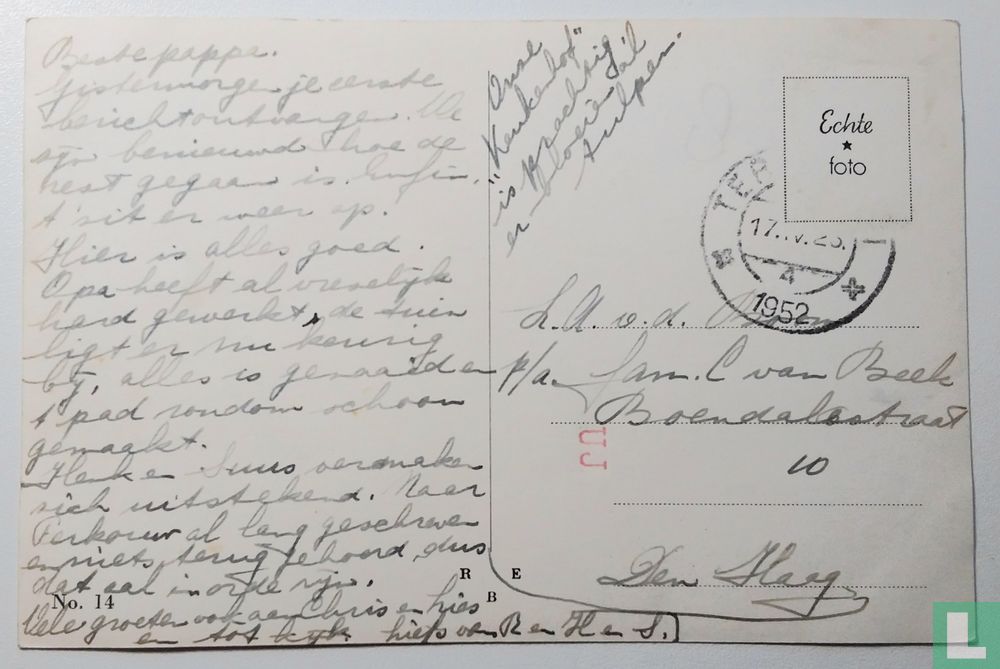 Beste pappa.
Gistermorgen je eerste
bericht ontvangen. We
zijn benieuwd hoe de
rest gegaan is. Enfin,
t' sit er weer op.
Hier is alles goed.
Opa heeft al vreselijk
hard gewerkt, de tuin
ligt er nu keurig
bij, alles is gemaaid en
t' pad rondom schoon
gemaakt.
Henk en Suus vermaken
zich uitstekend. Naar
al lang geschreven
en niets terug gehoord, dus
dat zal in orde zijn.
Vele groeten ook aan Chris en Lies
en tot kijk. liefs van R en H en S.
Onze
"Keukenhof"
is prachtig
er bloeien al
tulpen.
Echte
foto
17.IV.23.
4
1952
L.A. v.d.
p/a. fam. C van Beek
Boendalestraat
10
Den Haag
No. 14
R E
B
L